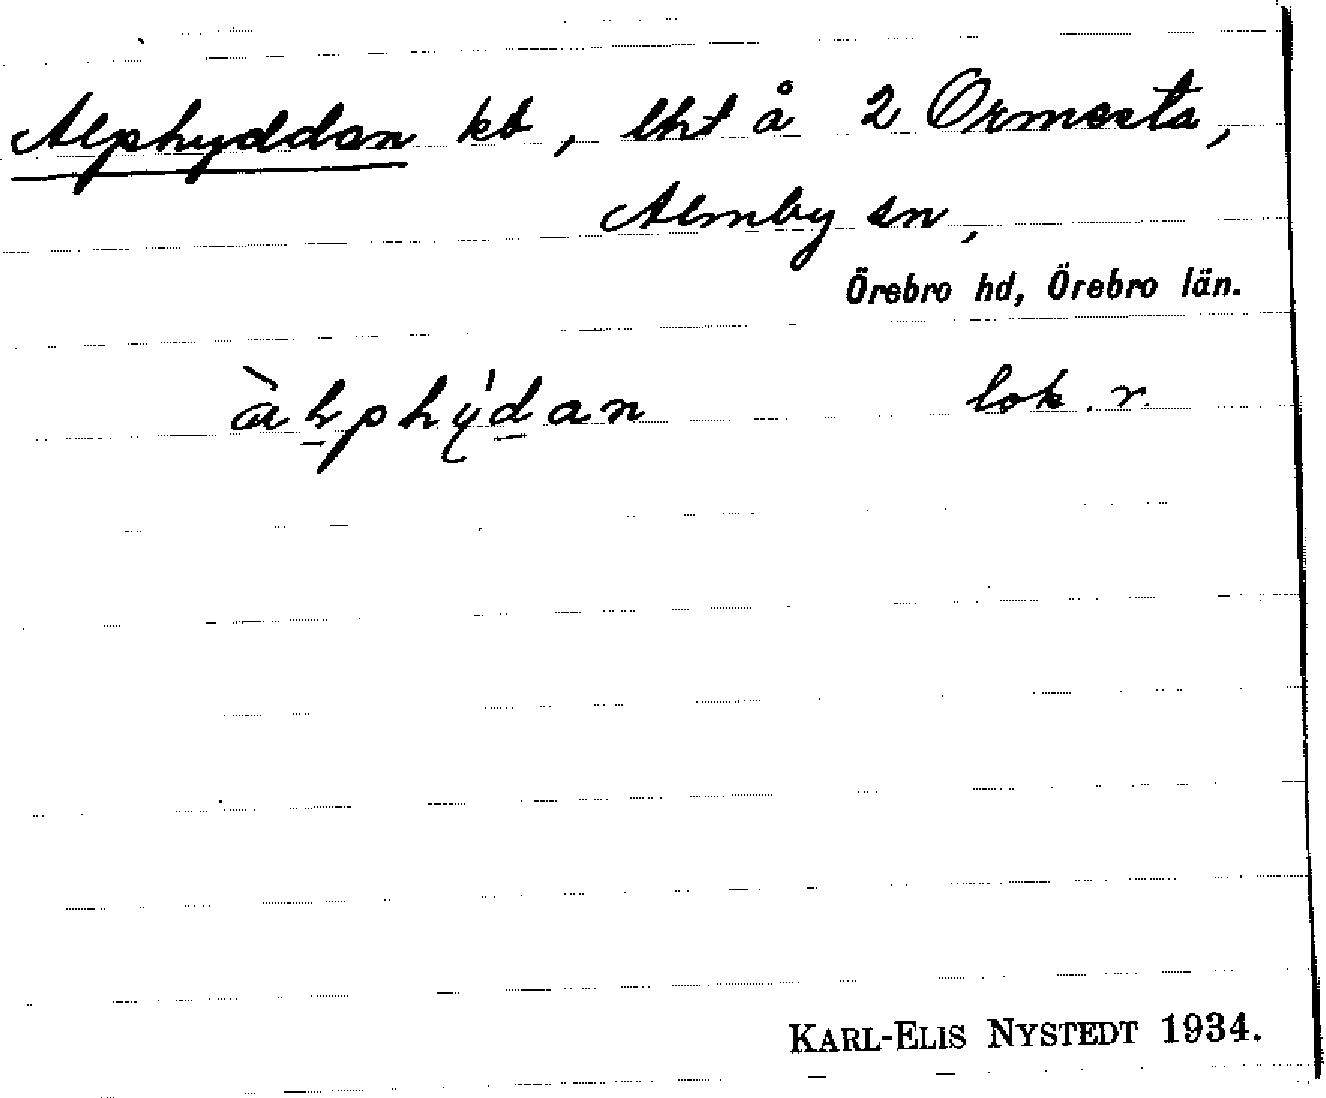 Alphyddan kt, lht å 2 Ormesta,
Almby sn,
Örebro hd, Örebro län.
lok. r.
KARL-ELIS NYSTEDT 1934.